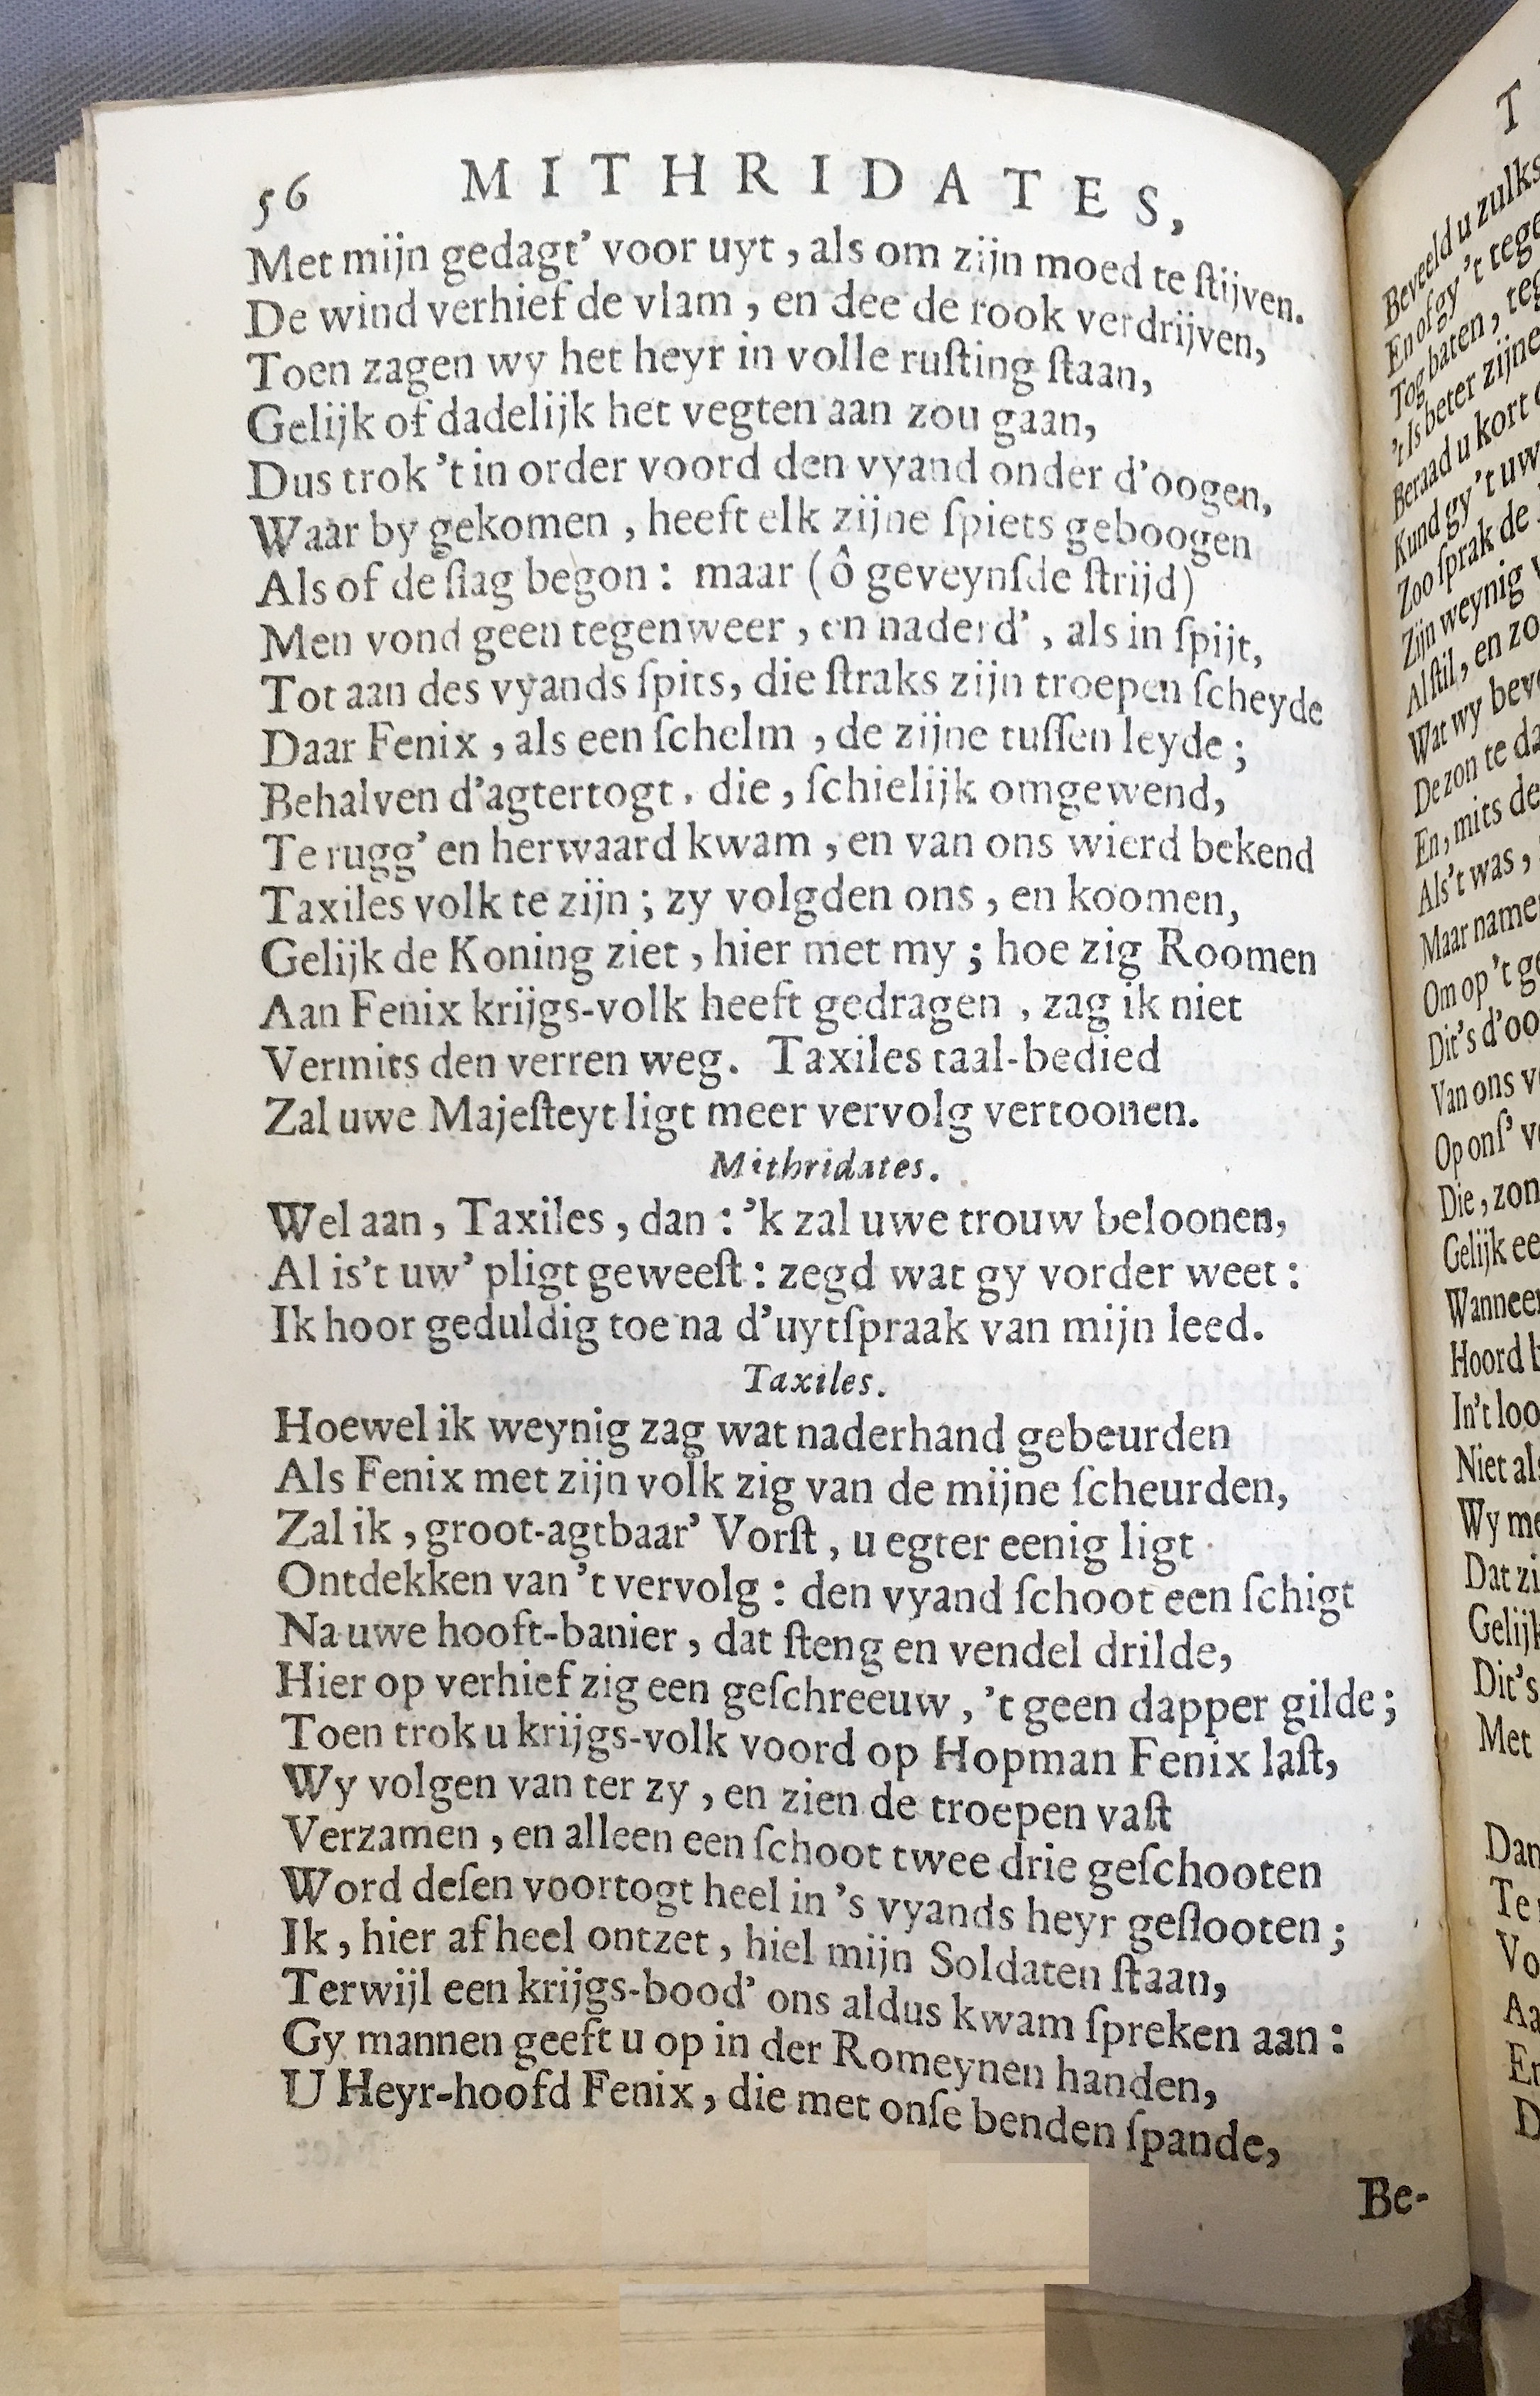 56 MITHRIDATES,
Met mijn gedagt' voor uyt, als om zijn moed te ſtijven.
De wind verhief de vlam, en dee de rook verdrijven,
Toen zagen wy het heyr in volle ruſting ſtaan,
Gelijk of dadelijk het vegten aan zou gaan,
Dus trok 't in order voord den vyand onder d'oogen,
Waar by gekomen, heeft elk zijne ſpiets geboogen
Als of de ſlag begon: maar (ô geveynſde ſtrijd)
Men vond geen tegenweer, en naderd', als in ſpijt,
Tot aan des vyands ſpits, die ſtraks zijn troepen ſcheyde
Daar Fenix, als een ſchelm, de zijne tuſſen leyde;
Behalven d'agtertogt, die, ſchielijk omgewend,
Te rugg' en herwaard kwam, en van ons wierd bekend
Taxiles volk te zijn; zy volgden ons, en koomen,
Gelijk de Koning ziet, hier met my; hoe zig Roomen
Aan Fenix krijgs-volk heeft gedragen, zag ik niet
Vermits den verren weg. Taxiles taal-bedied
Zal uwe Majeſteyt ligt meer vervolg vertoonen.
Mithridates.
Wel aan, Taxiles, dan: 'k zal uwe trouw beloonen,
Al is't uw' pligt geweeſt: zegd wat gy vorder weet:
Ik hoor geduldig toe na d'uytſpraak van mijn leed.
Taxiles.
Hoewel ik weynig zag wat naderhand gebeurden
Als Fenix met zijn volk zig van de mijne ſcheurden,
Zal ik, groot-agtbaar' Vorſt, u egter eenig ligt
Ontdekken van 't vervolg: den vyand ſchoot een ſchigt
Na uwe hooft-banier, dat ſteng en vendel drilde,
Hier op verhief zig een geſchreeuw, 't geen dapper gilde;
Toen trok u krijgs-volk voord op Hopman Fenix laſt,
Wy volgen van ter zy, en zien de troepen vaſt
Verzamen, en alleen een ſchoot twee drie geſchooten
Word deſen voortogt heel in 's vyands heyr geſlooten;
Ik, hier af heel ontzet, hiel mijn Soldaten ſtaan,
Terwijl een krijgs-bood' ons aldus kwam ſpreken aan:
Gy mannen geeft u op in der Romeynen handen,
U Heyr-hoofd Fenix, die met onſe benden ſpande,
Be-
T
Beveeld u zulks
En of gy 't tege
Tog baten, teg
't Is beter zijne
Beraad u kort
Kund gy 't uw
Zoo ſprak de
Zijn weynig
Al ſtil, en zo
Wat wy beve
De zon te da
En, mits de
Als 't was,
Maar name
Om op 't ge
Dit's d'oo
Van ons v
Op onſ' v
Die, zon
Gelijk ee
Wanneer
Hoord
In't loo
Niet als
Wy me
Dat zi
Gelijk
Dit's
Met
Dan
Te
Vo
Aa
En
D